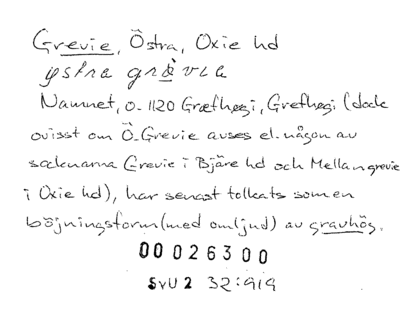 Grevie, Östra, Oxie hd
ystra grävia
Namnet, o. 1120 Græfhøgi, Grefhøgi (dock
ovisst om Ö. Grevie avses el. någon av
socknarna Grevie i Bjäre hd och Mellangrevie
i Oxie hd), har senast tolkats som en
böjningsform (med omljud) av gravhög.
00026300
SvU 2 32:919